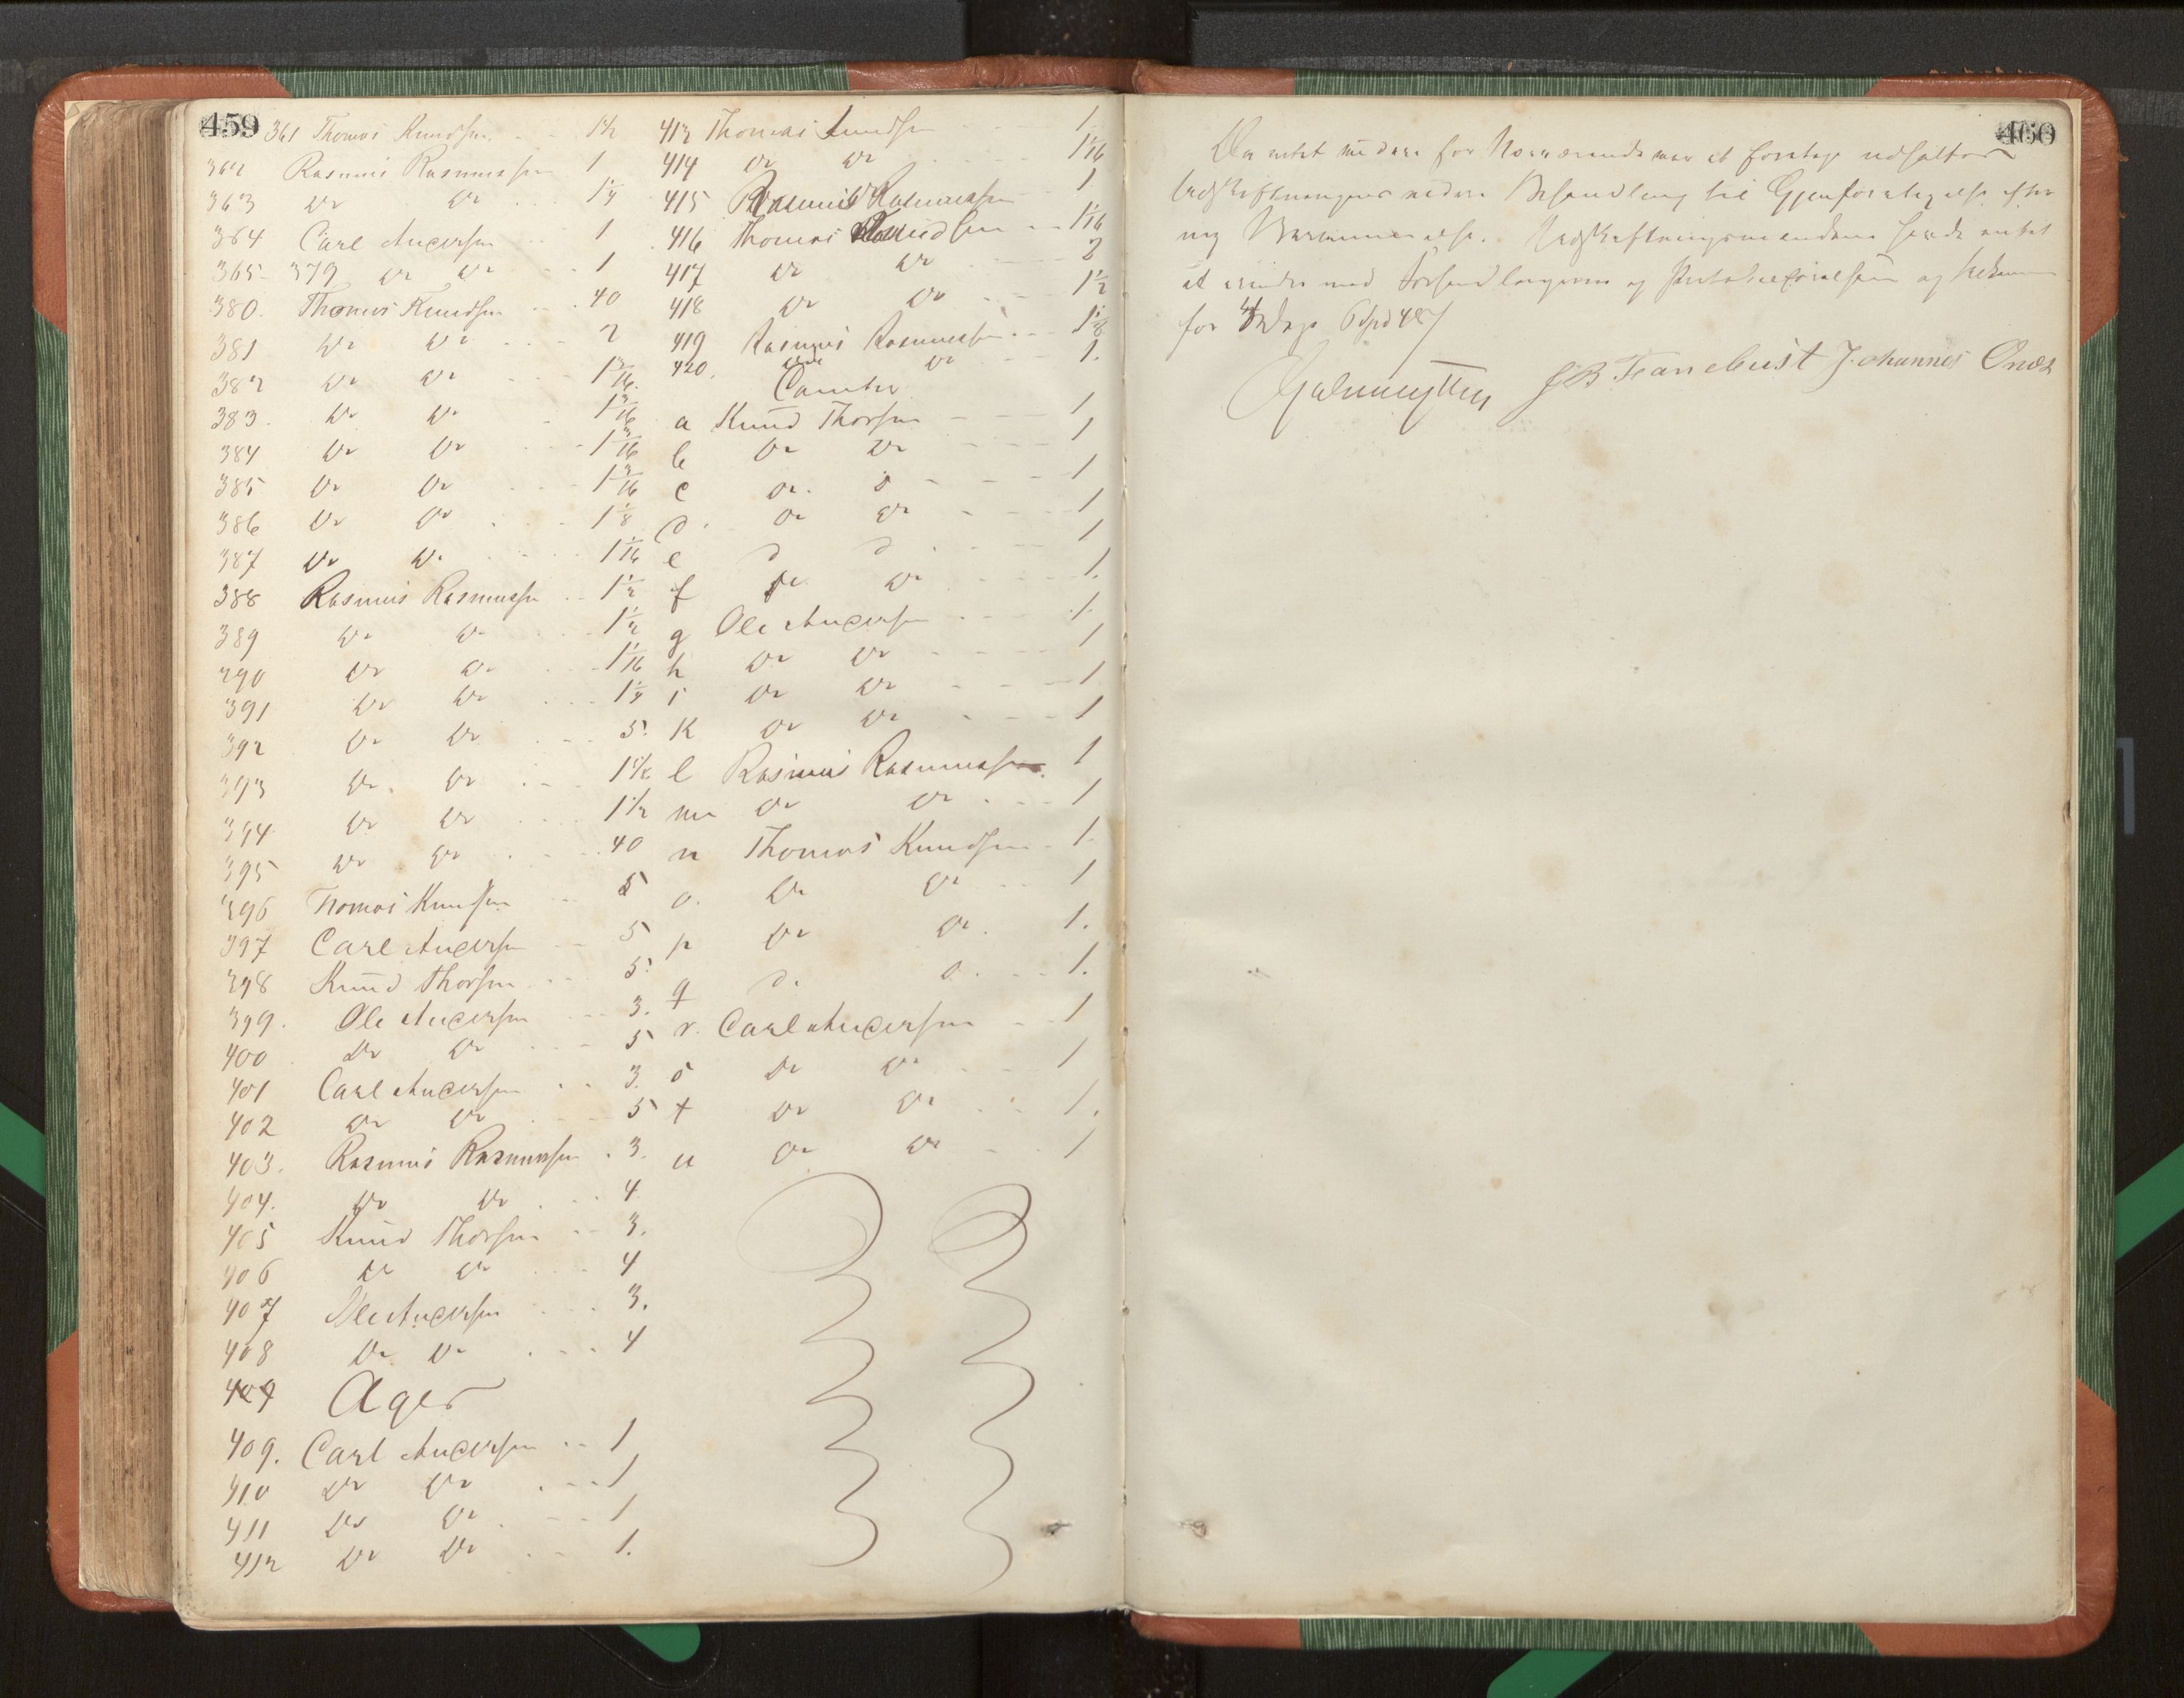 459
361 Thomas Knudsen 1 1/2
362 Rasmus Rasmussen 1
363 Do Do 1 1/4
364 Carl Andersen 1
365-379 Do Do 1
380. Thomas Knudsen 40
381 Do Do 2
382 Do Do 1 3/16.
383. Do Do 1 3/16
384 Do Do 1 3/16
385 Do Do 1 3/16
386 Do Do 1 1/8
387 Do Do 1 1/16
388 Rasmus Rasmussen 1 1/2
389 Do Do 1 1/2
390 Do Do 1 1/16
391 Do Do 1 1/4
392 Do Do 5.
393 Do. Do
394 Do Do 1 1/2
395 Do Do 40
396 Thomas Knudsen 5
397 Carl Andersen 5
398 Knud Thorsen 5.
399. Ole Andersen 3.
400 Do Do 5
401 Carl Andersen 3.
402 Do Do 5
403. Rasmus Rasmussen 3.
404. Do Do 4
405 Knud Thorsen 3.
406 Do Do 4
407 Ole Andersen 3.
408 Do Do 4
409 Ager
409. Carl Andersen 1
410 Do Do 1
411 Do Do 1
412 Do Do 1.
413 Thomas Knudsen 1
414 Do Do 1 1/16
415 Rasmus Rasmussen 1
416 Thomas Knudsen 1 1/16
417 Do Do
418 Do Do 1 1/2
419 Rasmus Rasmussen 1 1/8
420. Do Do 1.
a Knud Thorsen 1
b Do Do 1
c Do. Do 1
d. Do Do 1
e Do Do 1
f Do Do 1.
g Ole Andersen 1.
h Do Do 1
i Do Do 1
k Do Do 1
l Rasmus Rasmussen 1
m Do Do 1
n Thomas Knudsen 1.
o. Do Do 1
p Do Do. 1.
q Do. Do. 1.
r. Carl Andersen 1
s Do Do 1
t Do Do 1.
u Do Do 1
460
Da intet videre for Nærværende var at foretage udsattes
Udskiftningens videre Behandling til Gjenforetagelse efter
ny Berammelse. Udskiftningsmændene havde intet
at erindre mod Forhandlingerne og Protokolførelsen og
for 4 Dage
Johannes